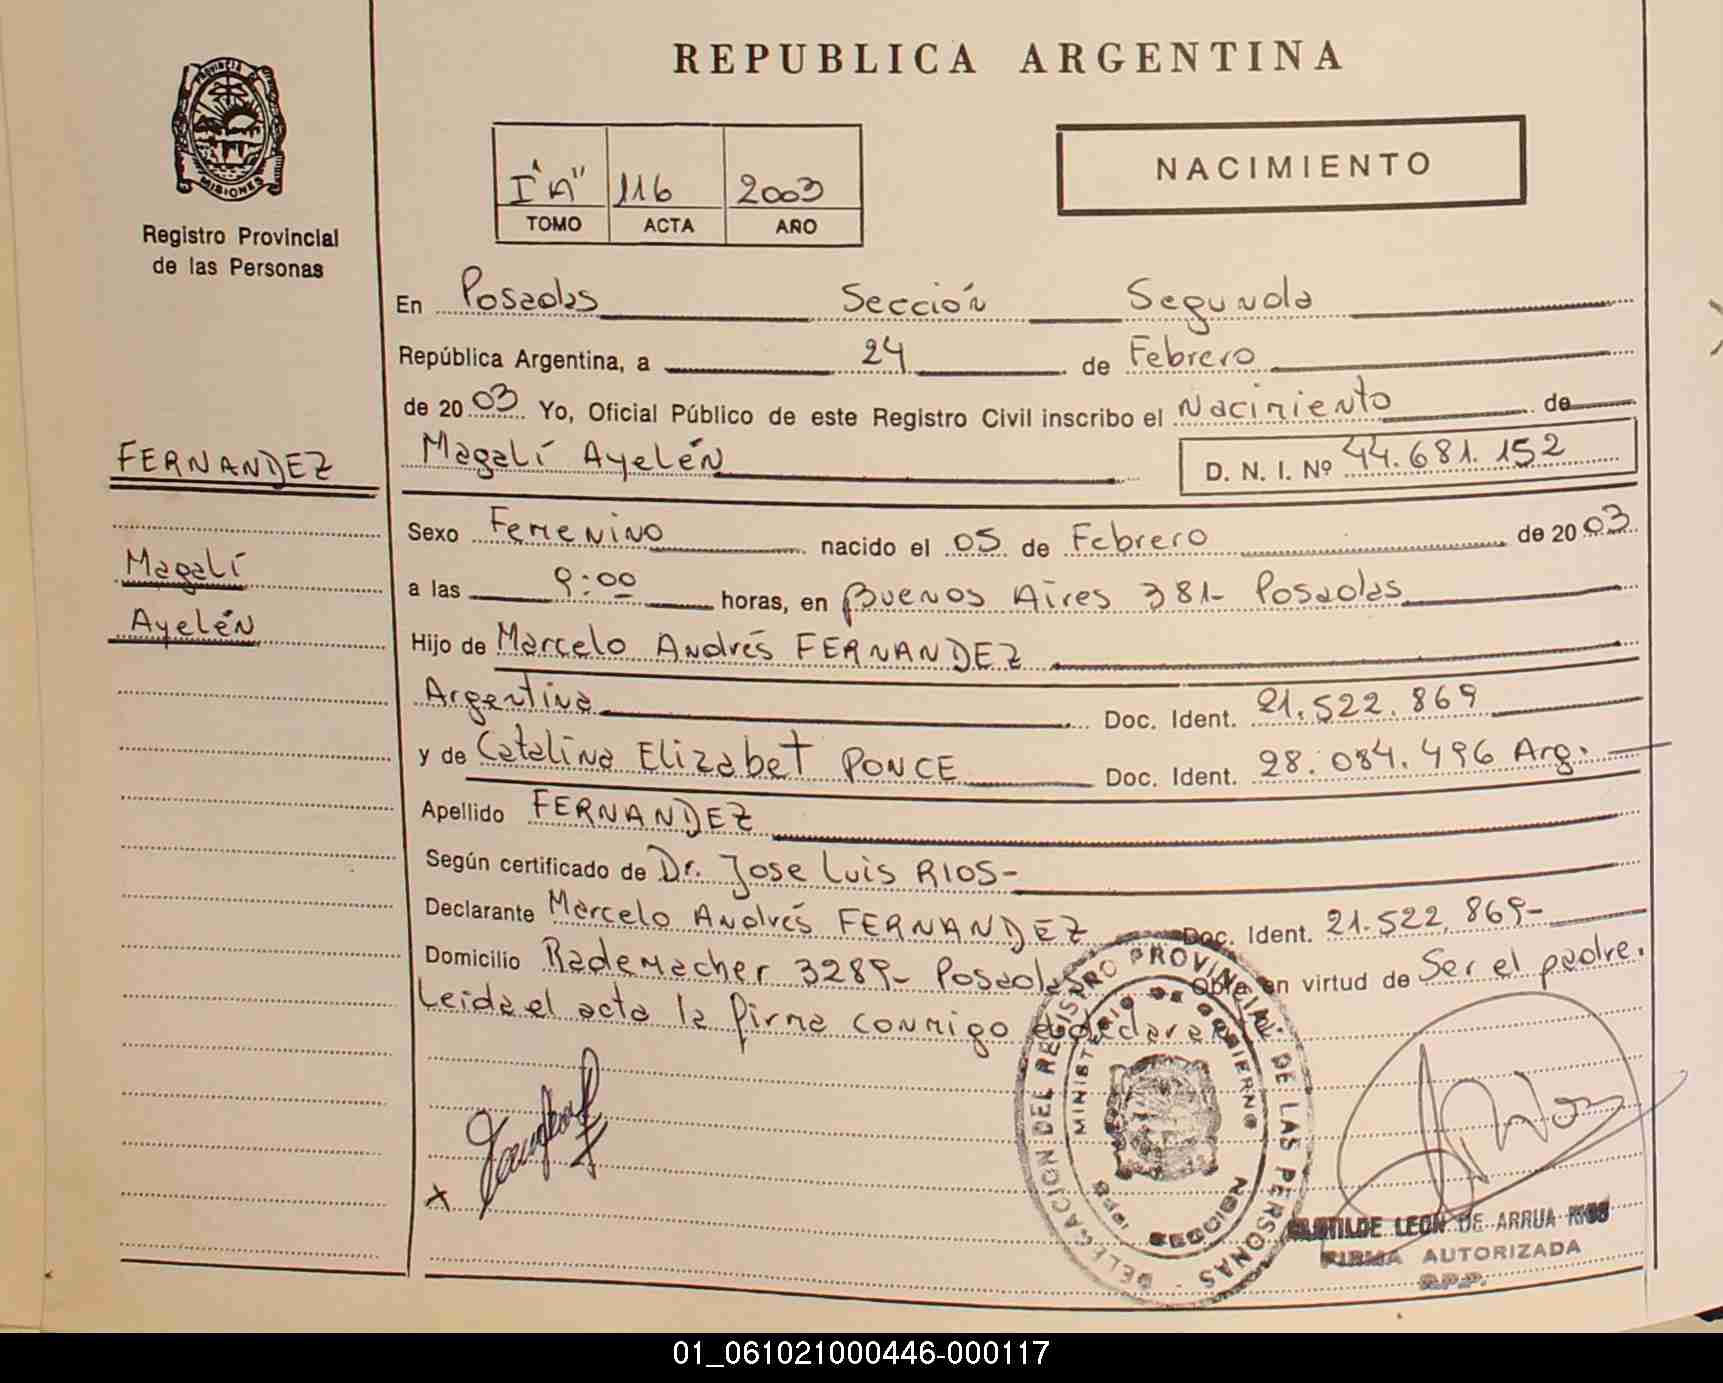 REPUBLICA ARGENTINA
PROVINCIA DE
MISIONES
Registro Provincial
de las Personas
NACIMIENTO
I "A" 116 2003
TOMO ACTA AÑO
En Posadas Sección Segunda
República Argentina, a 24 de Febrero
de 2003 Yo, Oficial Público de este Registro Civil inscribo el Nacimiento de
FERNANDEZ
Magalí Ayelén D. N. I. Nº 44.681.152
Sexo Femenino nacido el 05 de Febrero de 2003
Magalí
a las 9:00 horas, en Buenos Aires 381- Posadas
Ayelén
Hijo de Marcelo Andrés FERNANDEZ
Argentina Doc. Ident. 21.522.869
y de Catalina Elizabet PONCE Doc. Ident. 28.084.496 Arg.
Apellido FERNANDEZ
Según certificado de Dr. Jose Luis RIOS-
Declarante Marcelo Andrés FERNANDEZ Doc. Ident. 21.522.869-
Domicilio Rademacher 3289- Posadas Obra en virtud de Ser el padre.
Leida el acta la firma conmigo el declarante
DELEGACION DEL REGISTRO PROVINCIAL DE LAS PERSONAS
MINISTERIO DE GOBIERNO
SECCION
CLOTILDE LEON DE ARRUA RIOS
FIRMA AUTORIZADA
R.P.P.
01_061021000446-000117